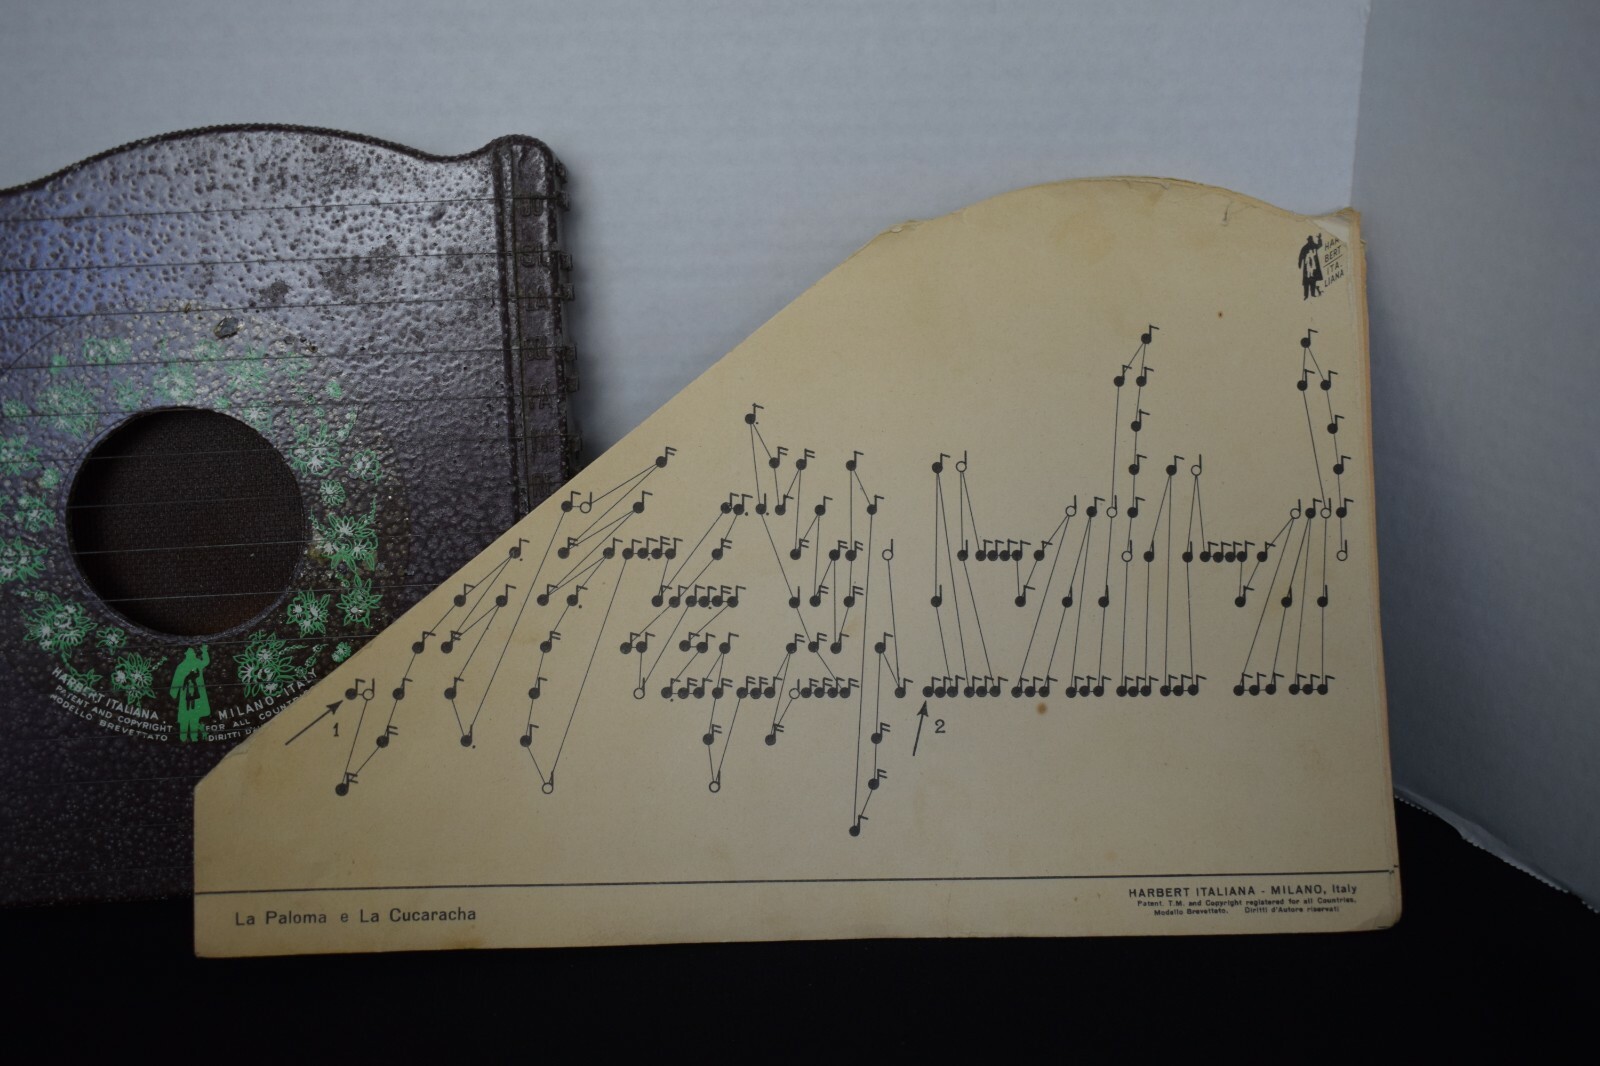 HAR
BERT
ITA.
LIANA
HARBERT ITALIANA MILANO-ITALY
PATENT AND COPYRIGHT FOR ALL
MODELLO BREVETTATO DIRITTI
1
2
La Paloma e La Cucaracha
HARBERT ITALIANA - MILANO, Italy
Patent. T.M. and Copyright registered for all Countries,
Modello Brevettato. Diritti d'Autore riservati